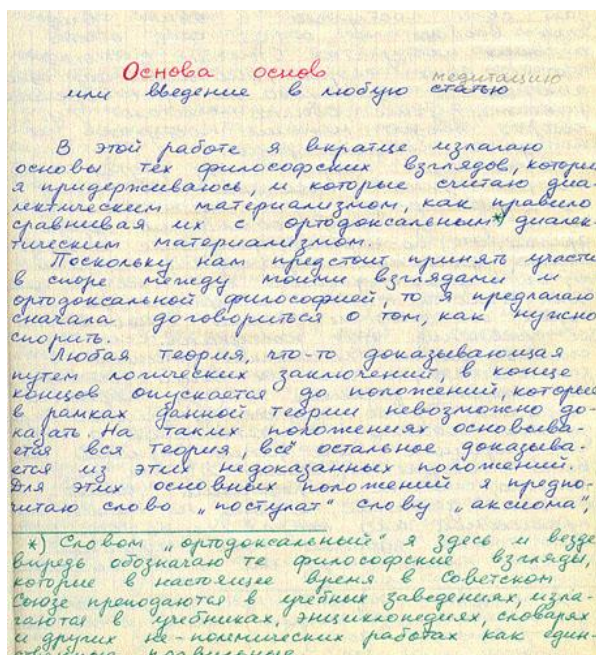 Основа основ
медитацию
или введение в любую статью
В этой работе я вкратце излагаю
основы тех философских взглядов, которых
я придерживаюсь, и которые считаю диа-
лектическим материализмом, как правило
сравнивая их с ортодоксальным*) диалек-
тическим материализмом.
Поскольку нам предстоит принять участи
в споре между моими взглядами и
ортодоксальной философией, то я предлагаю
сначала договориться о том, как нужно
спорить.
Любая теория, что-то доказывающая
путем логических заключений, в конце
концов опускается до положений, которые
в рамках данной теории невозможно до-
казать. На таких положениях основыва-
ется вся теория, всё остальное доказыва-
ется из этих недоказанных положений.
Для этих основных положений я предпо-
читаю слово „постулат" слову „аксиома",
*) Словом „ортодоксальный" я здесь и везде
впредь обозначаю те философские взгляды,
которые в настоящее время в Советском
Союзе преподаются в учебных заведениях, изла-
гаются в учебниках, энциклопедиях, словарях
и других не-полемических работах как един-